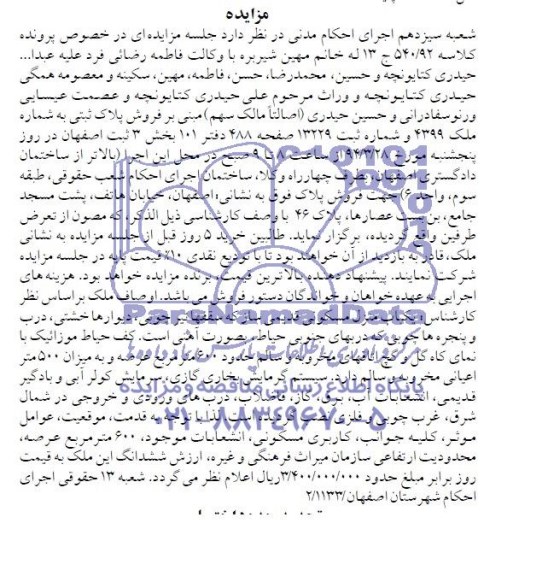 مزایده
شعبه سیزدهم اجرای احکام مدنی در نظر دارد جلسه مزایده‌ای در خصوص پرونده
کلاسه ۵۴۰/۹۲ ج ۱۳ له خانم مهین شیربره با وکالت فاطمه رضائی فرد علیه عبدا...
حیدری کتایونچه و حسین، محمدرضا، حسن، فاطمه، مهین، سکینه و معصومه همگی
حیدری کتایونچه و وراث مرحوم علی حیدری کتایونچه و عصمت عیسایی
ورنوسفادرانی و حسین حیدری (اصالتاً مالک سهم) مبنی بر فروش پلاک ثبتی به شماره
ملک ۴۳۹۹ و شماره ثبت ۱۳۲۲۹ صفحه ۴۸۸ دفتر ۱۰۱ بخش ۳ ثبت اصفهان در روز
پنجشنبه مورخ ۹۴/۳/۲۸ از ساعت ۸ تا ۹ صبح در محل این اجرا (بالاتر از ساختمان
دادگستری اصفهان، طرف چهارراه وکلا، ساختمان اجرای احکام شعب حقوقی، طبقه
سوم، واحد ۶) جهت فروش پلاک فوق به نشانی: اصفهان، خیابان هاتف، پشت مسجد
جامع، بن بست عصارها، پلاک ۴۶ با وصف کارشناسی ذیل الذکر، که مصون از تعرض
طرفین واقع گردیده، برگزار نماید. طالبین خرید ۵ روز قبل از جلسه مزایده به نشانی
ملک، قادر به بازدید از آن خواهند بود تا با تودیع نقدی ۱۰٪ قیمت پایه در جلسه مزایده
شرکت نمایند. پیشنهاد دهنده بالاترین قیمت، برنده مزایده خواهد بود. هزینه‌های
اجرایی به عهده خواهان و خواندگان دستور فروش می باشد. اوصاف ملک بر اساس نظر
کارشناس: یکباب منزل مسکونی قدیمی ساز که سقفها تیر چوبی، دیوارها خشتی، درب
و پنجره ها چوبی که دربهای جنوبی حیاط، بصورت آهنی است. کف حیاط موزائیک با
نمای کاه گل و گچ اتاقهای مخروبه و سالم حدود ۶۰۰ متر مربع عرصه و به میزان ۵۰۰ متر
اعیانی مخروبه و سالم دارد. سیستم گرمایش بخاری گازی، سرمایش کولر آبی و بادگیر
قدیمی، انشعابات آب، برق، گاز، فاضلاب، درب های ورودی و خروجی در شمال
شرق، غرب چوبی و فلزی نصب گردیده است. لذا با توجه به قدمت، موقعیت، عوامل
موثر، کلیه جوانب، کاربری مسکونی، انشعابات موجود، ۶۰۰ مترمربع عرصه،
محدودیت ارتفاعی سازمان میراث فرهنگی و غیره، ارزش ششدانگ این ملک به قیمت
روز برابر مبلغ حدود ۳/۴۰۰/۰۰۰/۰۰۰ ریال اعلام نظر می گردد. شعبه ۱۳ حقوقی اجرای
احکام شهرستان اصفهان ۲/۱۱۳۳/
ParsNamadData
پایگاه اطلاع رسانی مناقصه و مزایده
۰۲۱-۸۸۳۴۹۶۷۰-۵